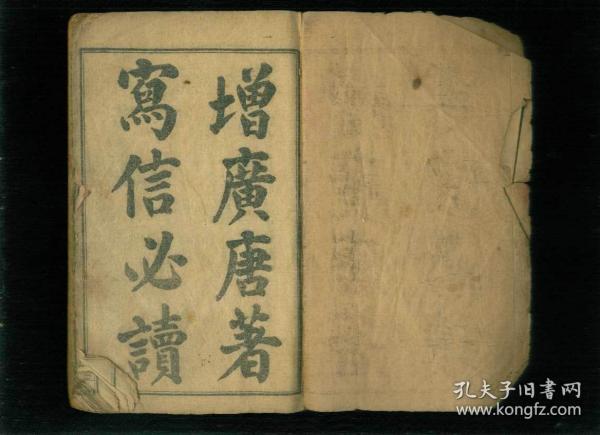 增廣唐著
寫信必讀
孔夫子旧书网
www.kongfz.com